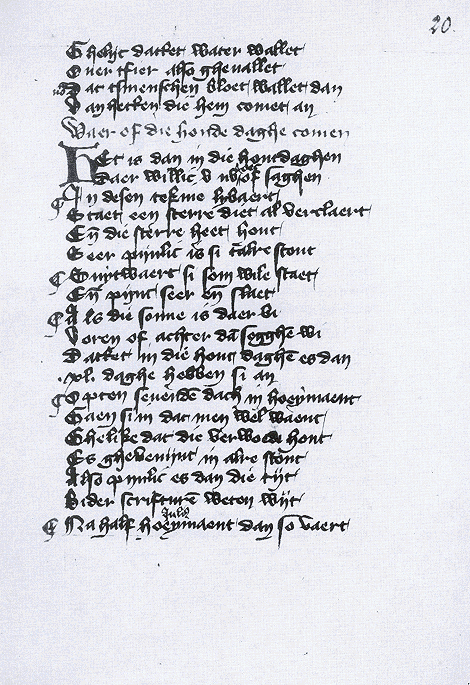 20.
Ghelijc dattet water wallet
Ouer tfier also gheuallet
Dat tsmenschen bloet wallet dan
Van hetten die hem comet an
Waer of die honde daghe comen
Het is dan in die hontdaghen
Daer willic v of saghen
In desen tekine lybaert
Staet een sterre diet al verclaert
Eñ die sterre heet hont
Seer pijnlic is si talre stont
Suytwaert si som wile staet
Eñ pijnt seer eñ slaet
Als die sonne is daer bi
Voren of achter dā segghē wi
Dattet in die hont daghē es dan
.xl. daghe hebben si an
Opten seuenden dach in hoeymaent
Gaen si in dat men wel waent
Ghelike dat die verwoede hont
Es gheuenijnt in alre stont
Also pijnlic es dan die tijt
Bider scrifturē weten wijt
Julij
Na half hoeymaent dan so vaert